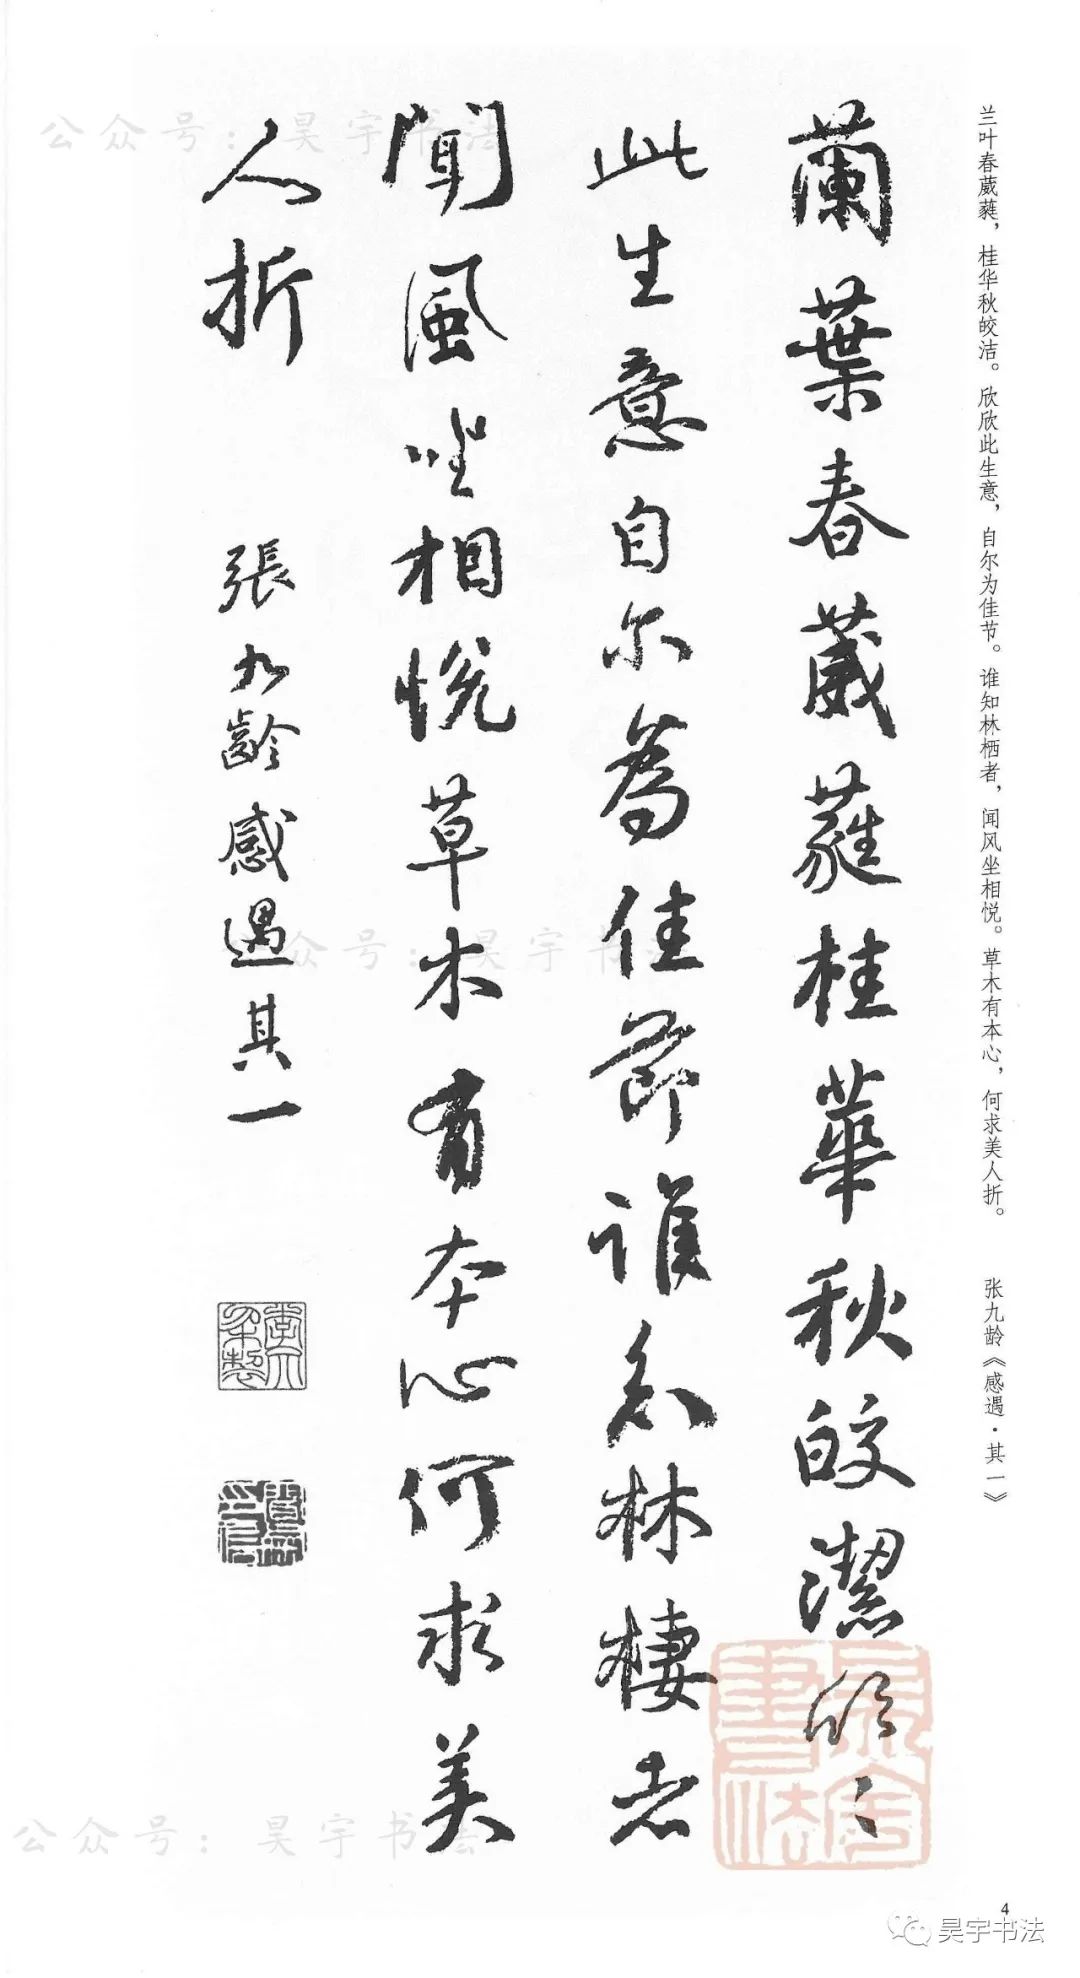 兰叶春葳蕤，桂华秋皎洁。欣欣此生意，自尔为佳节。谁知林栖者，闻风坐相悦。草木有本心，何求美人折。　张九龄《感遇·其一》
蘭葉春葳蕤桂華秋皎潔欣〻
此生意自尔為佳節誰知林棲者
聞風坐相悅草木有本心何求美
人折
張九齡感遇其一
公众号：昊宇书法
公众号：昊宇书法
公众号：昊宇书法
昊宇書法
4
昊宇书法